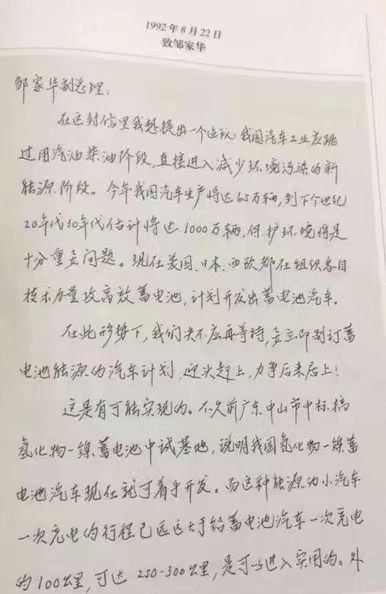 1992年8月22日
致邹家华
邹家华副总理：
在这封信里我想提出一个建议：我国汽车工业应跳
过用汽油柴油阶段，直接进入减少环境污染的新
能源阶段。今年我国汽车生产将达65万辆，到下个世纪
20年代30年代估计将达1000万辆，保护环境将是
十分重要问题。现在美国、日本、西欧都在组织各自
技术力量攻高效蓄电池，计划开发出蓄电池汽车。
在此形势下，我们决不应再等待，要立即制订蓄
电池能源的汽车计划，迎头赶上，力争后来居上！
这是有可能实现的。不久前广东中山市中标，搞
氢化物—镍蓄电池中试基地，说明我国氢化物—镍蓄
电池汽车现在就可着手开发。而这种能源的小汽车
一次充电的行程已远远大于铅蓄电池汽车一次充电
的100公里，可达250-300公里，是可以进入实用的。外